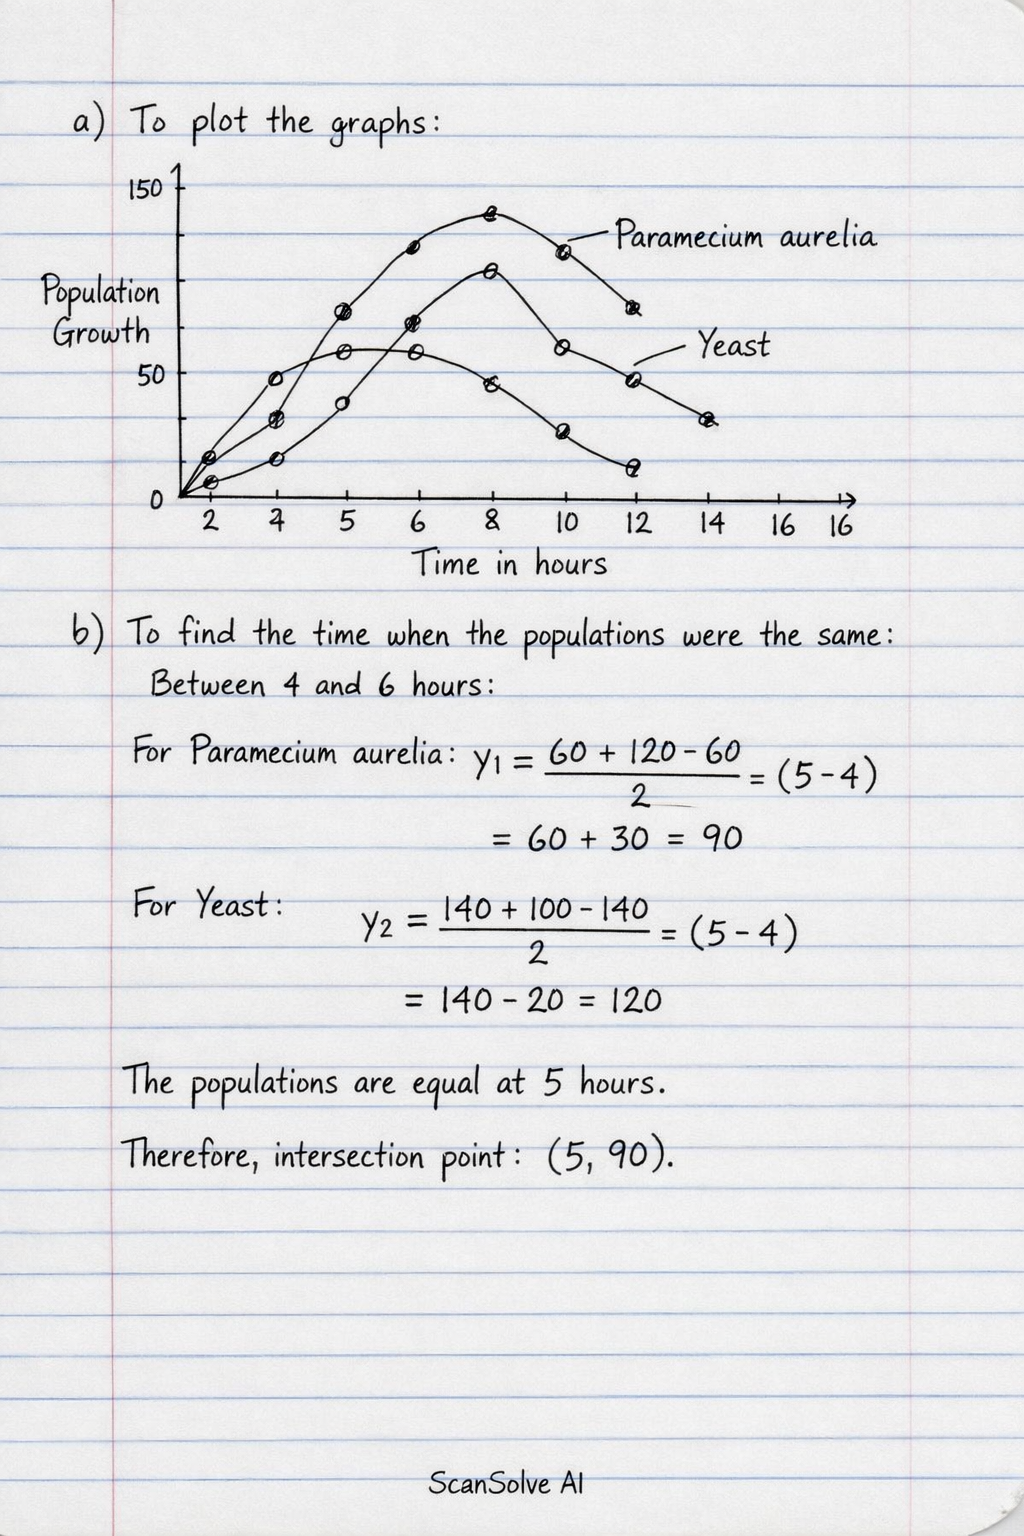 a) To plot the graphs:
150
Population
Growth
50
0
Paramecium aurelia
Yeast
2 4 5 6 8 10 12 14 16 16
Time in hours
b) To find the time when the populations were the same:
Between 4 and 6 hours:
For Paramecium aurelia: y1 = (60 + 120 - 60)/2 = (5 - 4)
= 60 + 30 = 90
For Yeast: y2 = (140 + 100 - 140)/2 = (5 - 4)
= 140 - 20 = 120
The populations are equal at 5 hours.
Therefore, intersection point: (5, 90).
ScanSolve AI